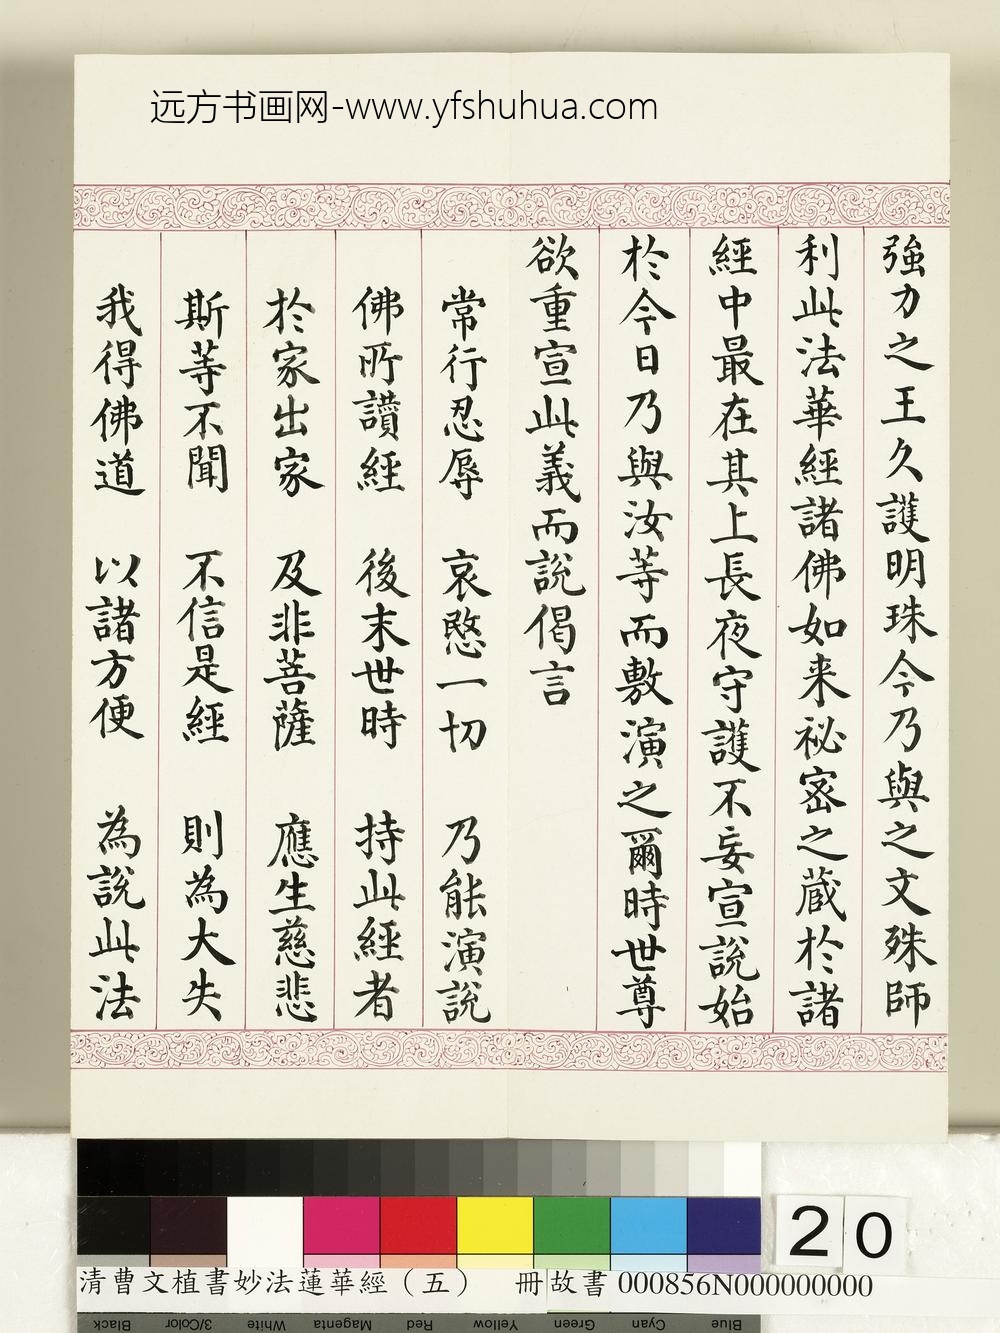 远方书画网-www.yfshuhua.com
強力之王久護明珠今乃與之文殊師
利此法華經諸佛如来祕密之蔵於諸
經中最在其上長夜守護不妄宣說始
於今日乃與汝等而敷演之爾時世尊
欲重宣此義而說偈言
常行忍辱 哀愍一切 乃能演說
佛所讃經 後末世時 持此經者
於家出家 及非菩薩 應生慈悲
斯等不聞 不信是經 則為大失
我得佛道 以諸方便 為說此法
20
清曹文植書妙法蓮華經（五） 冊 故書 000856N000000000
Black 3/Color White Magenta Red Yellow Green Cyan Blue